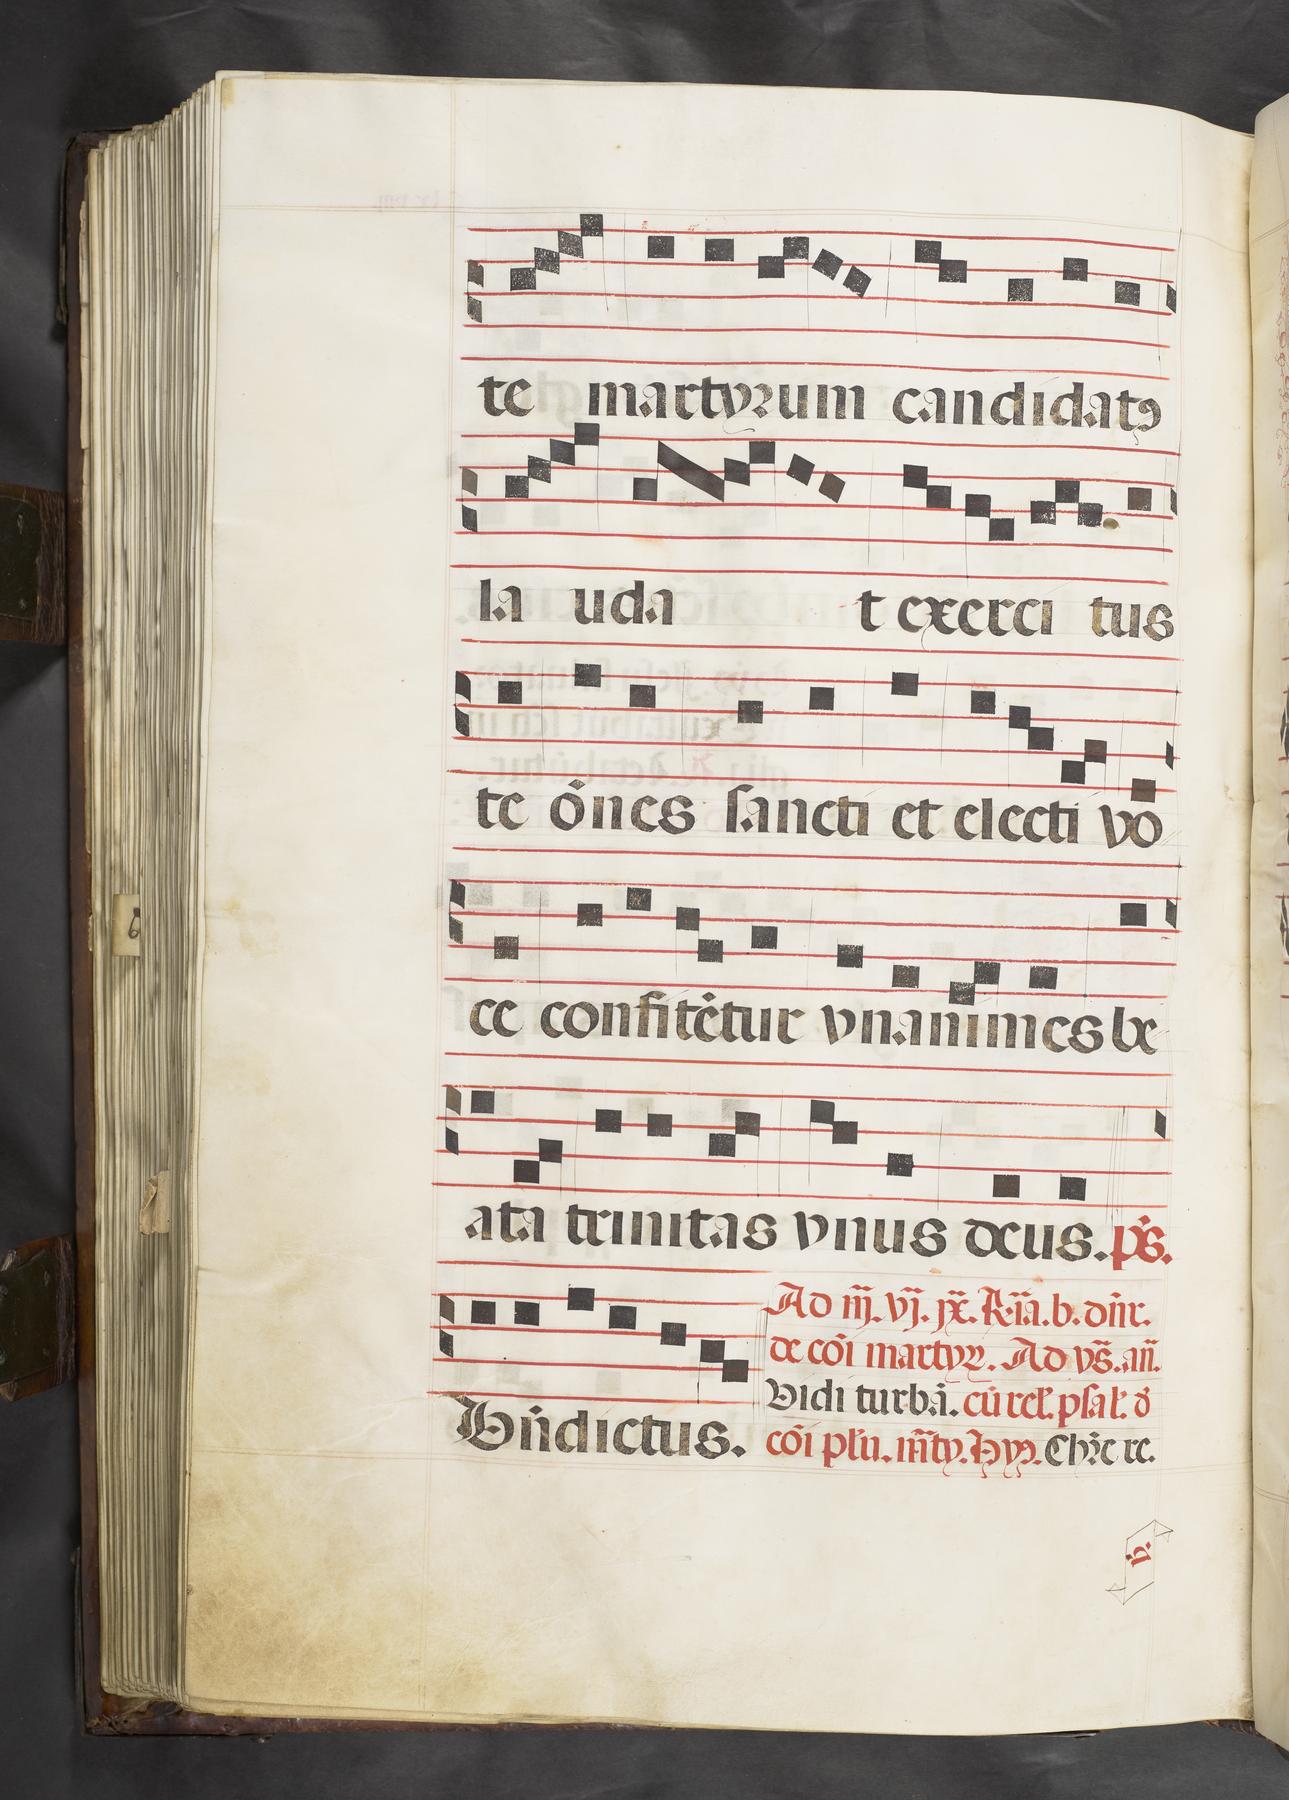 te martyrum candidatꝰ
la uda t exerci tus
te om̄nes sancti et electi vo
ce confitētur vnanimes be
ata trinitas vnus deus. p̄s.
Bn̄dictus.
Ad iij. vj. jx. R̄ia. b. dn̄r.
de cōi martyꝝ. Ad vs̄. an̄.
Vidi turbā. cū rel. psal. d̄
cōi plu. mr̄ty. Hyꝰ. Chr̄e re.
v.